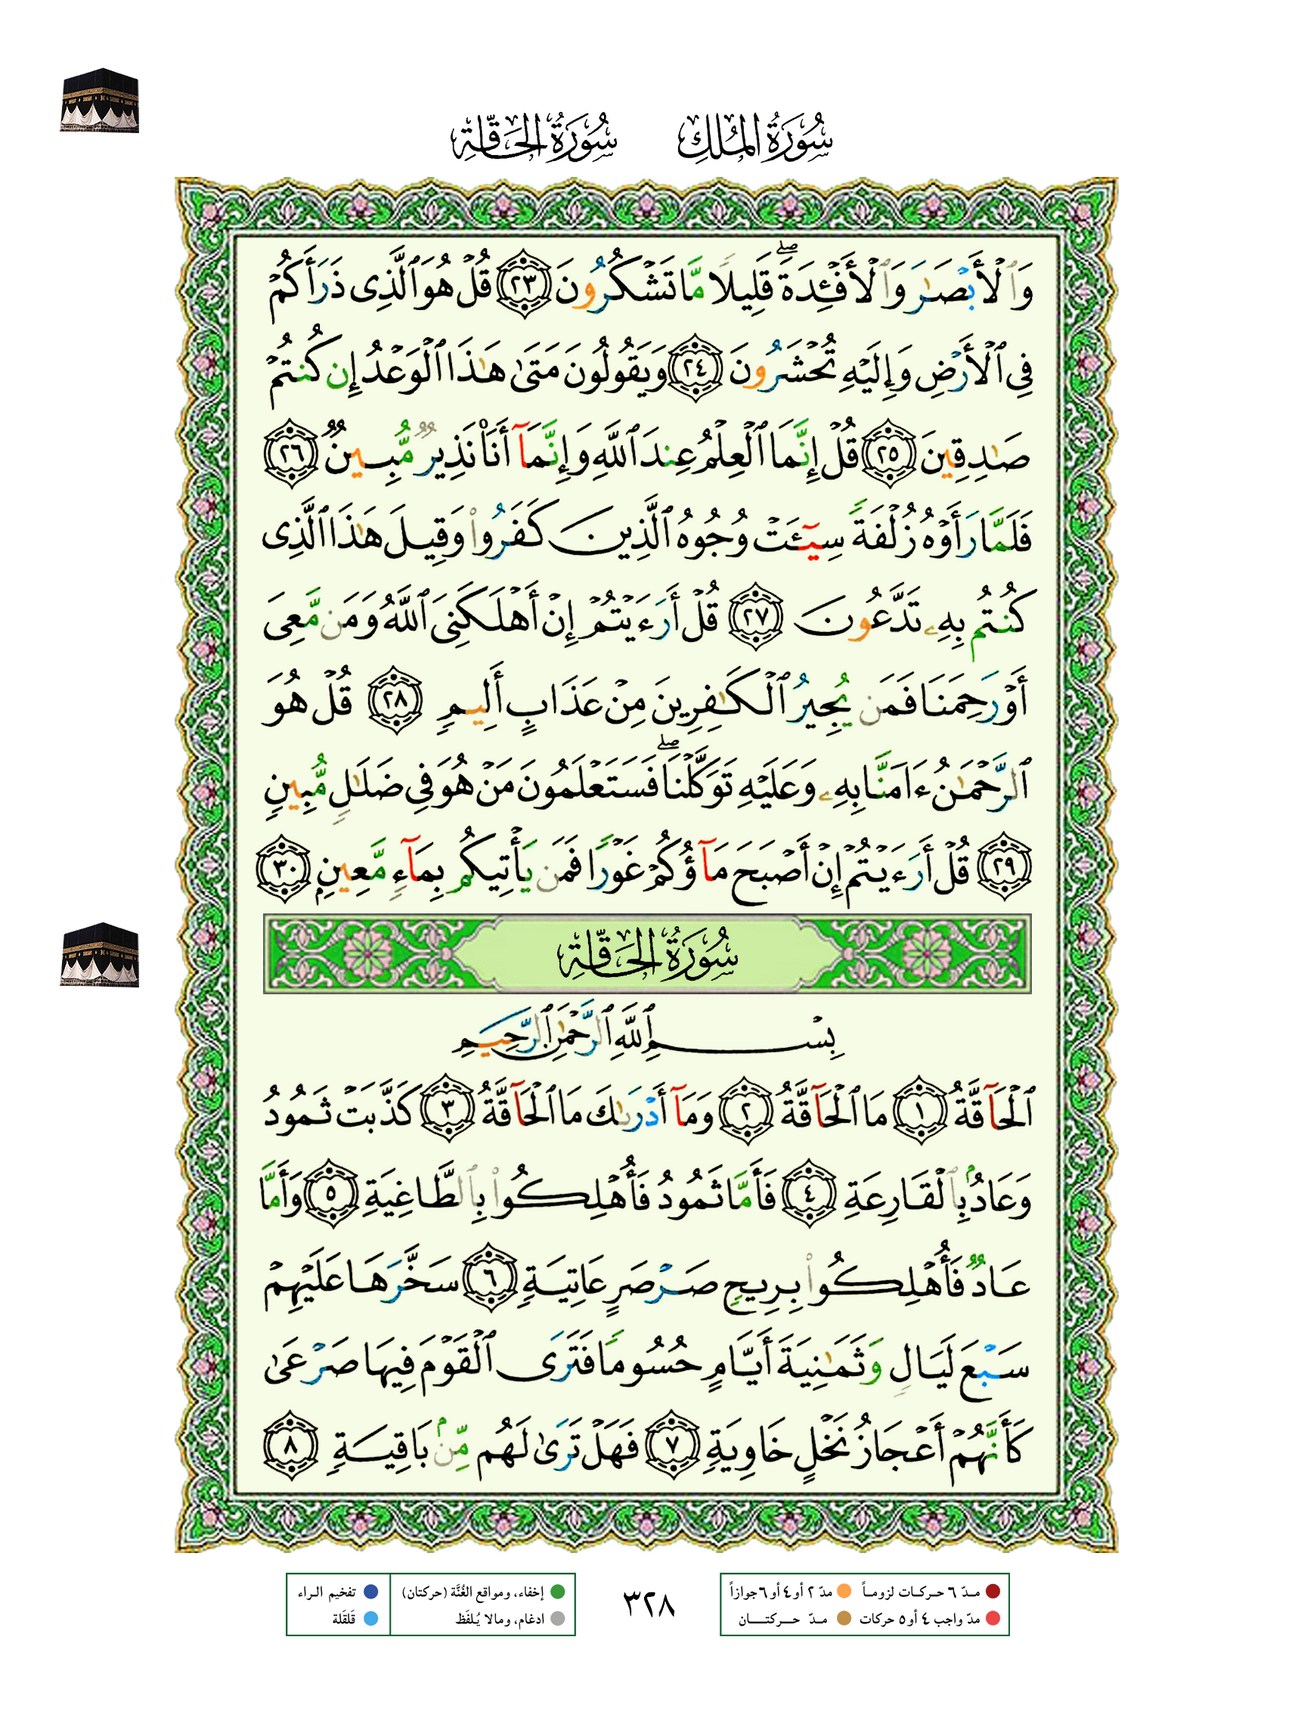 سُورَةُ الْمُلْكِ سُورَةُ الْحَاقَّةِ
وَٱلْأَبْصَٰرَ وَٱلْأَفْـِٔدَةَ ۖ قَلِيلًا مَّا تَشْكُرُونَ ﴿٢٣﴾ قُلْ هُوَ ٱلَّذِى ذَرَأَكُمْ
فِى ٱلْأَرْضِ وَإِلَيْهِ تُحْشَرُونَ ﴿٢٤﴾ وَيَقُولُونَ مَتَىٰ هَٰذَا ٱلْوَعْدُ إِن كُنتُمْ
صَٰدِقِينَ ﴿٢٥﴾ قُلْ إِنَّمَا ٱلْعِلْمُ عِندَ ٱللَّهِ وَإِنَّمَآ أَنَا۠ نَذِيرٌ مُّبِينٌ ﴿٢٦﴾
فَلَمَّا رَأَوْهُ زُلْفَةً سِيٓـَٔتْ وُجُوهُ ٱلَّذِينَ كَفَرُوا۟ وَقِيلَ هَٰذَا ٱلَّذِى
كُنتُم بِهِۦ تَدَّعُونَ ﴿٢٧﴾ قُلْ أَرَءَيْتُمْ إِنْ أَهْلَكَنِىَ ٱللَّهُ وَمَن مَّعِىَ
أَوْ رَحِمَنَا فَمَن يُجِيرُ ٱلْكَٰفِرِينَ مِنْ عَذَابٍ أَلِيمٍ ﴿٢٨﴾ قُلْ هُوَ
ٱلرَّحْمَٰنُ ءَامَنَّا بِهِۦ وَعَلَيْهِ تَوَكَّلْنَا ۖ فَسَتَعْلَمُونَ مَنْ هُوَ فِى ضَلَٰلٍ مُّبِينٍ
﴿٢٩﴾ قُلْ أَرَءَيْتُمْ إِنْ أَصْبَحَ مَآؤُكُمْ غَوْرًا فَمَن يَأْتِيكُم بِمَآءٍ مَّعِينٍۭ ﴿٣٠﴾
سُورَةُ الْحَاقَّةِ
بِسْمِ ٱللَّهِ ٱلرَّحْمَٰنِ ٱلرَّحِيمِ
ٱلْحَآقَّةُ ﴿١﴾ مَا ٱلْحَآقَّةُ ﴿٢﴾ وَمَآ أَدْرَىٰكَ مَا ٱلْحَآقَّةُ ﴿٣﴾ كَذَّبَتْ ثَمُودُ
وَعَادٌۢ بِٱلْقَارِعَةِ ﴿٤﴾ فَأَمَّا ثَمُودُ فَأُهْلِكُوا۟ بِٱلطَّاغِيَةِ ﴿٥﴾ وَأَمَّا
عَادٌ فَأُهْلِكُوا۟ بِرِيحٍ صَرْصَرٍ عَاتِيَةٍ ﴿٦﴾ سَخَّرَهَا عَلَيْهِمْ
سَبْعَ لَيَالٍ وَثَمَٰنِيَةَ أَيَّامٍ حُسُومًا فَتَرَى ٱلْقَوْمَ فِيهَا صَرْعَىٰ
كَأَنَّهُمْ أَعْجَازُ نَخْلٍ خَاوِيَةٍ ﴿٧﴾ فَهَلْ تَرَىٰ لَهُم مِّنۢ بَاقِيَةٍ ﴿٨﴾
مـدّ ٦ حـركـات لزومـاً مدّ ٢ أو ٤ أو ٦ جوازاً
مدّ واجب ٤ أو ٥ حركات مـدّ حـــركتـــــان
٣٢٨
إخفاء، ومواقع الغُنَّة (حركتان) تفخيم الـراء
ادغام، ومالا يُـلفَظ قلقلة